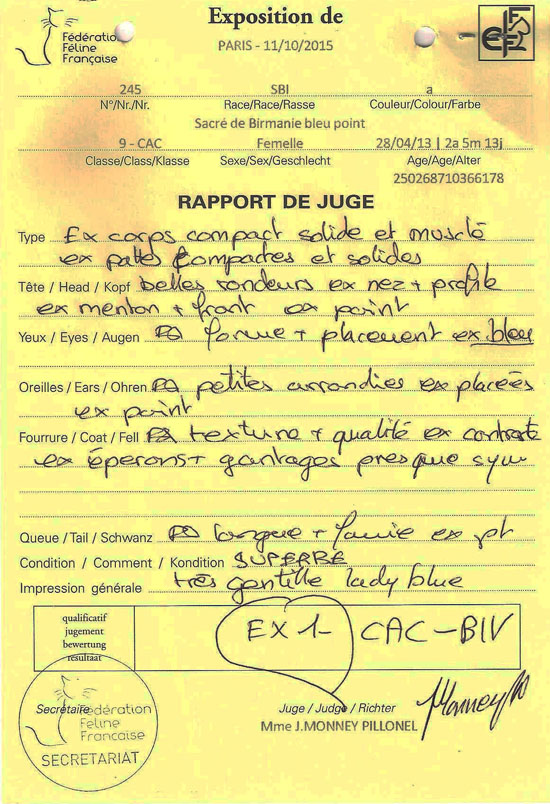 Exposition de
Fédération
Féline
Française
PARIS - 11/10/2015
245 SBI a
N°/Nr./Nr. Race/Race/Rasse Couleur/Colour/Farbe
Sacré de Birmanie bleu point
9 - CAC Femelle 28/04/13 | 2a 5m 13j
Classe/Class/Klasse Sexe/Sex/Geschlecht Age/Age/Alter
250268710366178
RAPPORT DE JUGE
Type Ex corps compact solide et musclé
ex pattes compactes et solides
Tête / Head / Kopf belles rondeurs ex nez + profile
ex menton + front ex point
Yeux / Eyes / Augen forme + placement ex bleu
Oreilles / Ears / Ohren petites arrondies ex placées
ex point
Fourrure / Coat / Fell texture + qualité ex contraste
ex éperons + gantages presque sym
Queue / Tail / Schwanz longue + fournie ex pt
Condition / Comment / Kondition SUPERBE
Impression générale très gentille lady blue
qualificatif
jugement
bewertung
resultaat
EX 1- CAC-BIV
Secrétaire
Fédération
Féline
Française
SECRETARIAT
Juge / Judge / Richter
Mme J.MONNEY PILLONEL